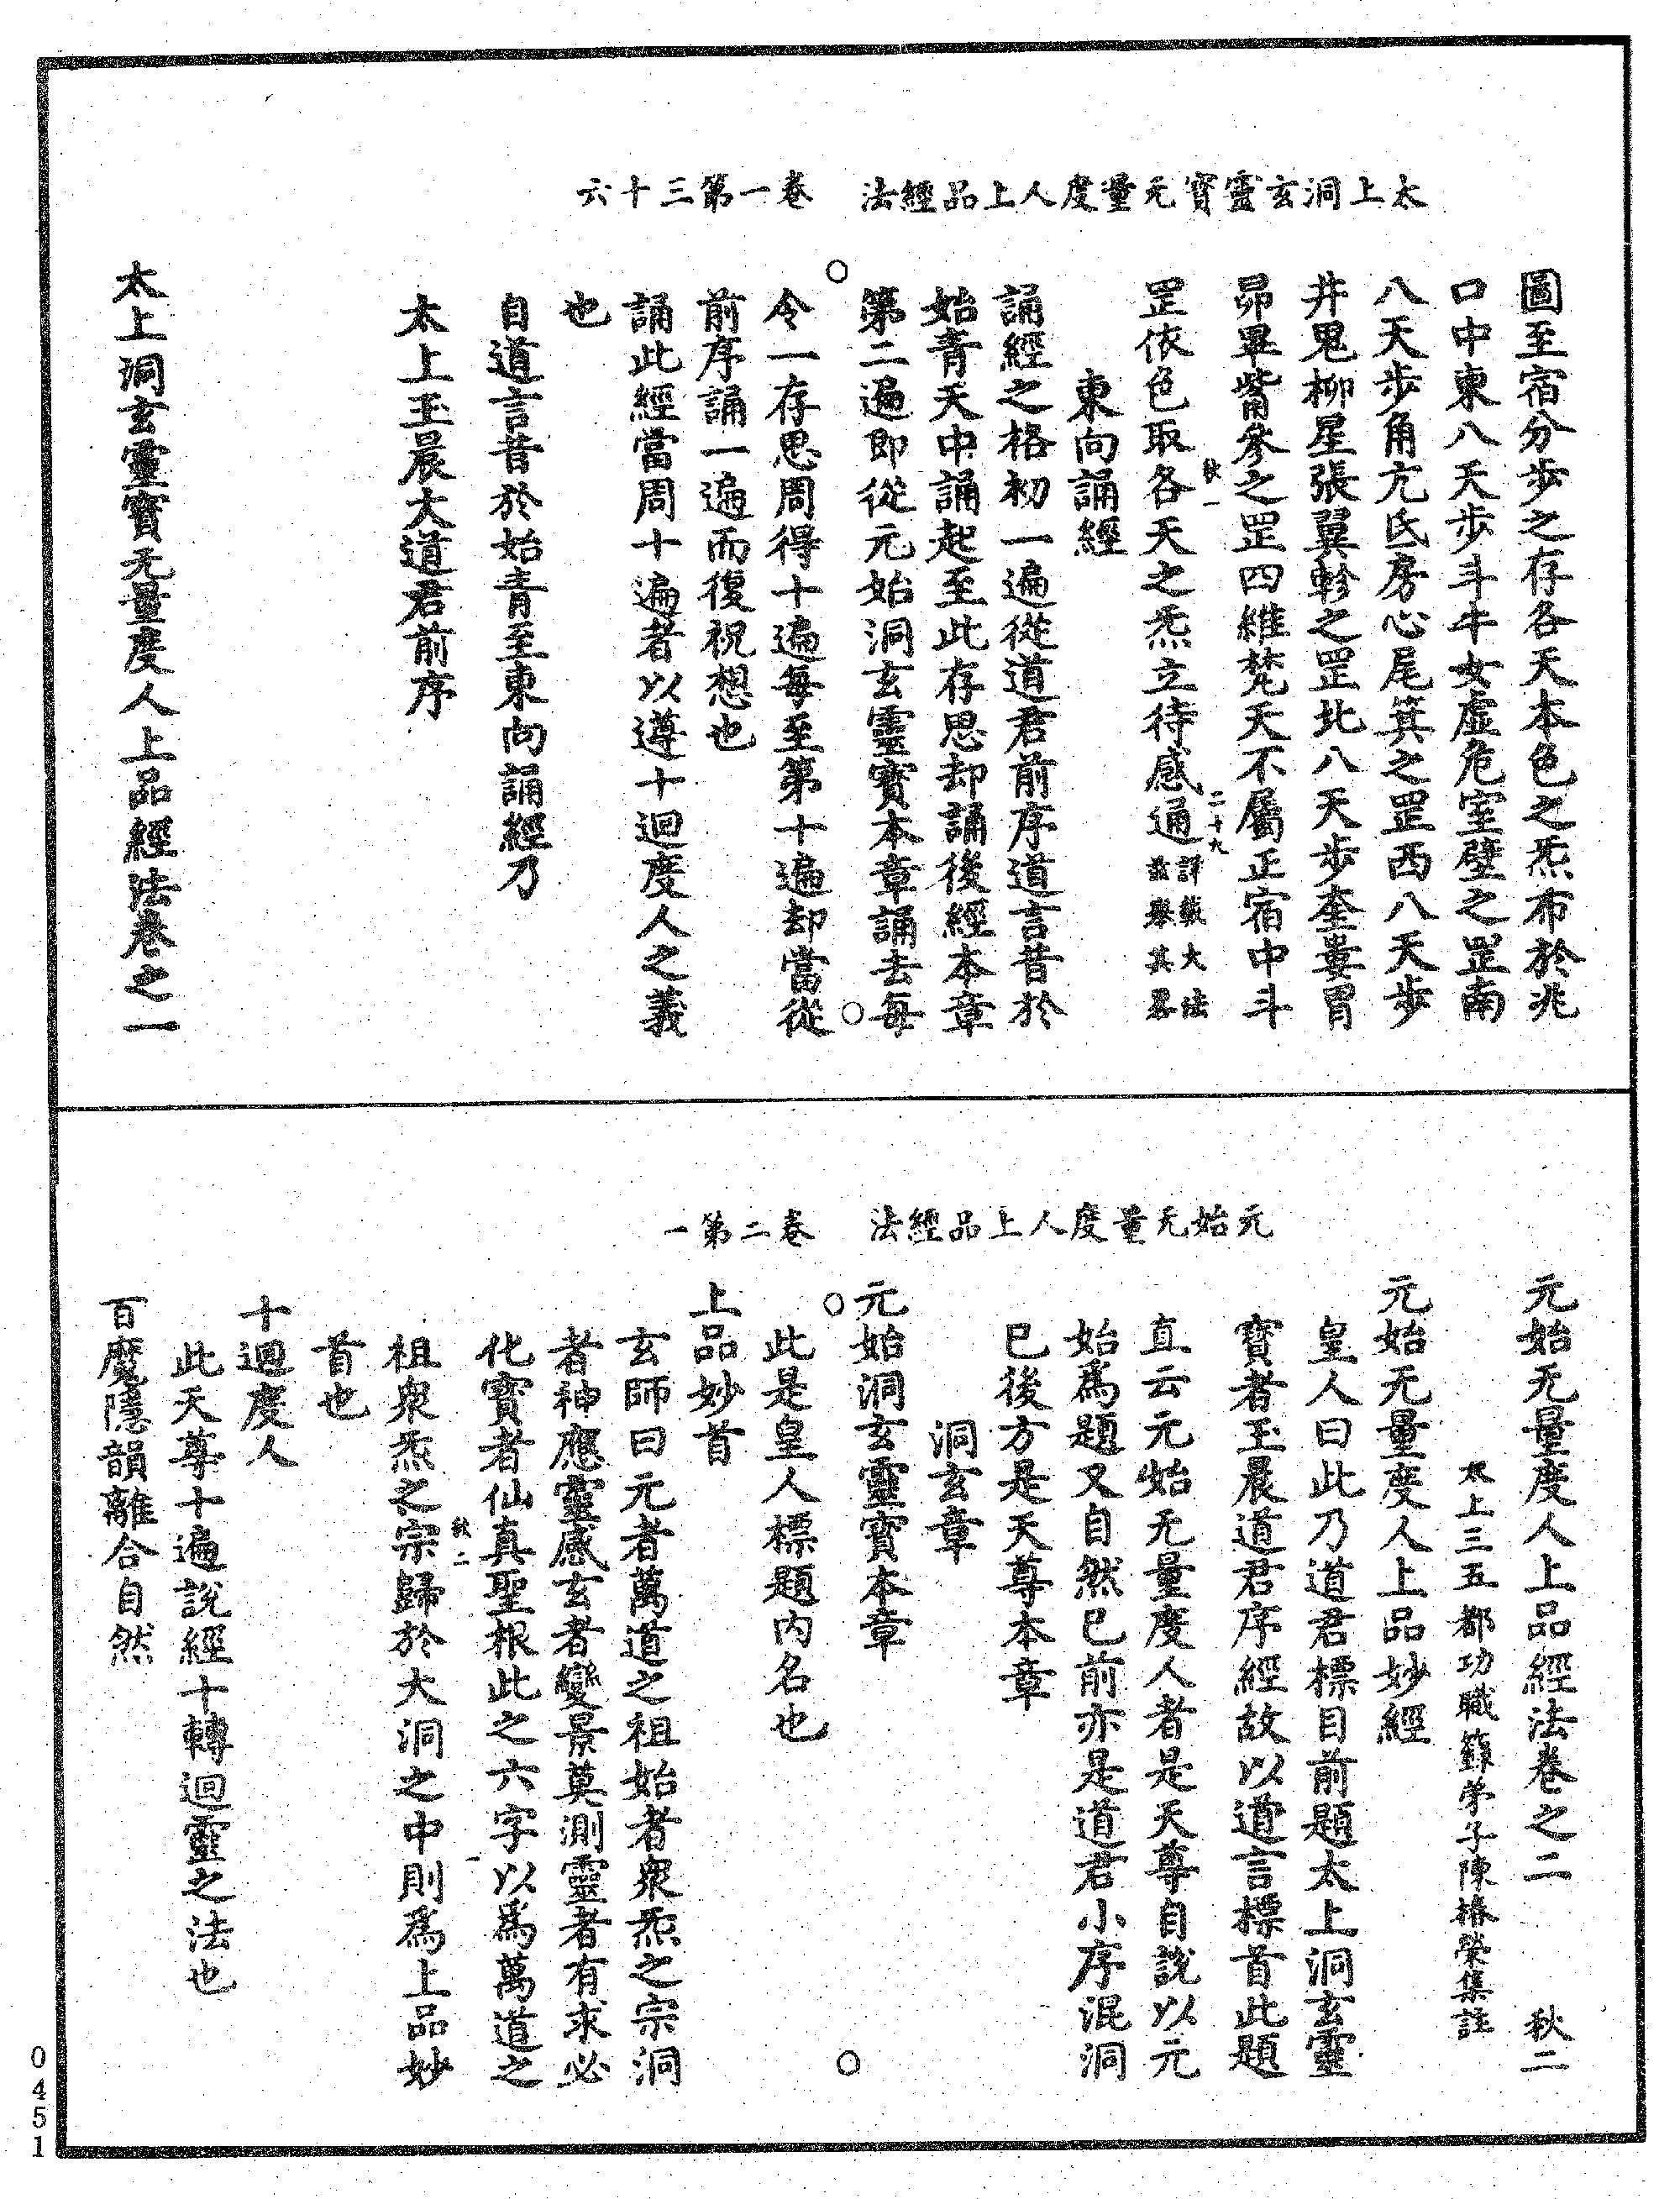 太上洞玄靈寶无量度人上品經法　卷一第三十六
圖至宿分步之存各天本色之炁布於兆
口中東八天步斗牛女虛危室壁之罡南
八天步角亢氐房心尾箕之罡西八天步
井鬼柳星張翼軫之罡北八天步奎婁胃
昴畢觜參之罡四維梵天不屬正宿中斗
秋一　二十九
罡依色取各天之炁立待感通詳載大法茲舉其畧
東向誦經
誦經之格初一遍從道君前序道言昔於
始青天中誦起至此存思却誦後經本章
第二遍即從元始洞玄靈寶本章誦去每
令一存思周得十遍每至第十遍却當從
前序誦一遍而復祝想也
誦此經當周十遍者以遵十迴度人之義
也
自道言昔於始青至東向誦經乃
太上玉晨大道君前序
太上洞玄靈寶无量度人上品經法卷之一
元始无量度人上品經法　卷二第一
元始无量度人上品經法卷之二　秋二
太上三五都功職籙弟子陳椿榮集註
元始无量度人上品妙經
皇人曰此乃道君標目前題太上洞玄靈
寶者玉晨道君序經故以道言標首此題
直云元始无量度人者是天尊自說以元
始爲題又自然已前亦是道君小序混洞
已後方是天尊本章
洞玄章
元始洞玄靈寶本章
此是皇人標題內名也
上品妙首
玄師曰元者萬道之祖始者衆炁之宗洞
者神應靈感玄者變景莫測靈者有求必
化寶者仙真聖根此之六字以爲萬道之
秋二　一
祖衆炁之宗歸於大洞之中則爲上品妙
首也
十迴度人
此天尊十遍說經十轉迴靈之法也
百魔隱韻離合自然
0451